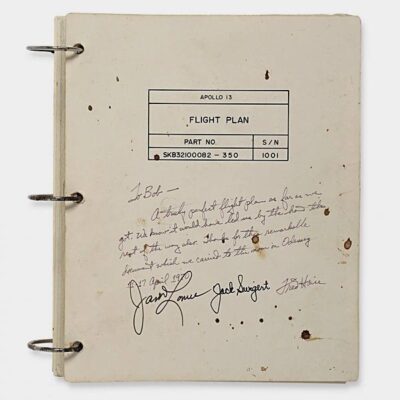 APOLLO 13
FLIGHT PLAN
PART NO. S/N
SKB32100082 - 350 1001
To Bob —
A truly perfect flight plan as far as we
got. We know it would have led us by the hand the
rest of the way also. Thanks for this remarkable
document which we carried to the moon in Odyssey
17 April 1970
James Lovell Jack Swigert Fred Haise